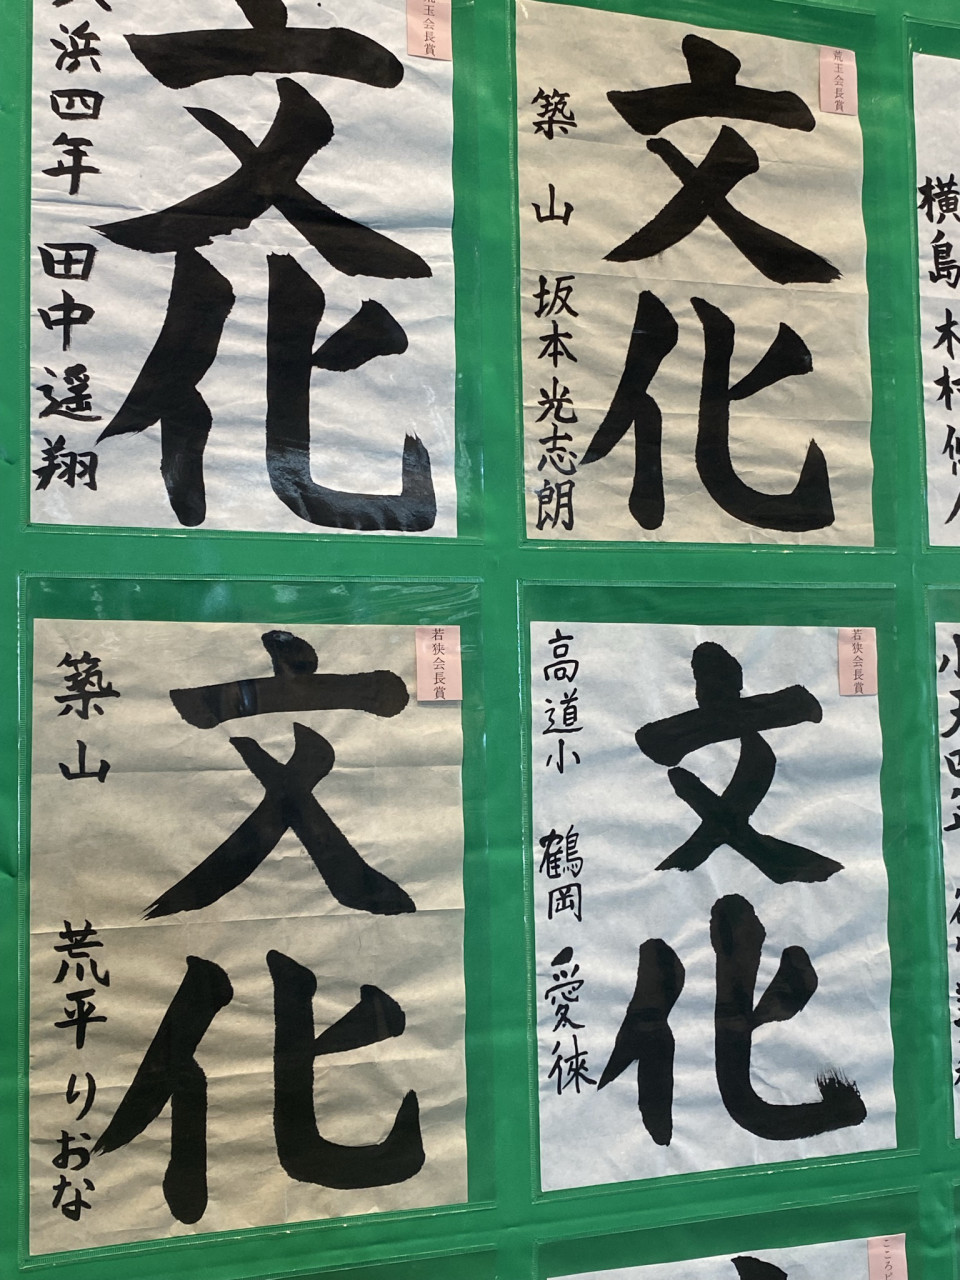 荒玉会長賞
文化
浜四年 田中遥翔
荒玉会長賞
文化
築山 坂本光志朗
横島 木村
若狭会長賞
文化
築山 荒平りおな
若狭会長賞
文化
高道小 鶴岡愛徠
小天四年
こころ